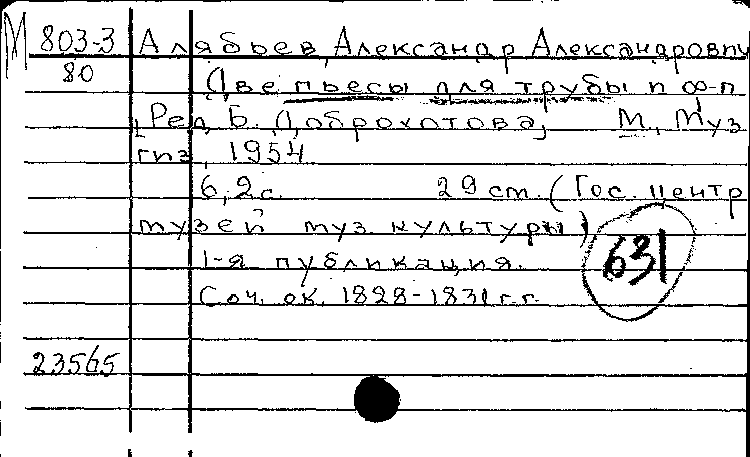 М 803-3 Алябьев, Александр Александрович
80 Две пьесы для трубы и ф-п
Ред. Б. Доброхотова, М., Муз
гиз, 1954
6, 2 с. 29 см. (Гос. центр
музей муз. культуры)
1-я публикация. 631
Соч. ок. 1828-1831 г.г.
23565